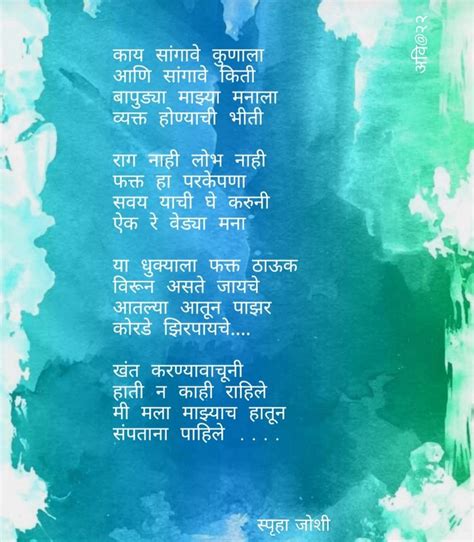 काय सांगावे कुणाला
आणि सांगावे किती
बापुड्या माझ्या मनाला
व्यक्त होण्याची भीती
राग नाही लोभ नाही
फक्त हा परकेपणा
सवय याची घे करुनी
ऐक रे वेड्या मना
या धुक्याला फक्त ठाऊक
विरून असते जायचे
आतल्या आतून पाझर
कोरडे झिरपायचे....
खंत करण्यावाचूनी
हाती न काही राहिले
मी मला माझ्याच हातून
संपताना पाहिले ....
स्पृहा जोशी
अवि@२२